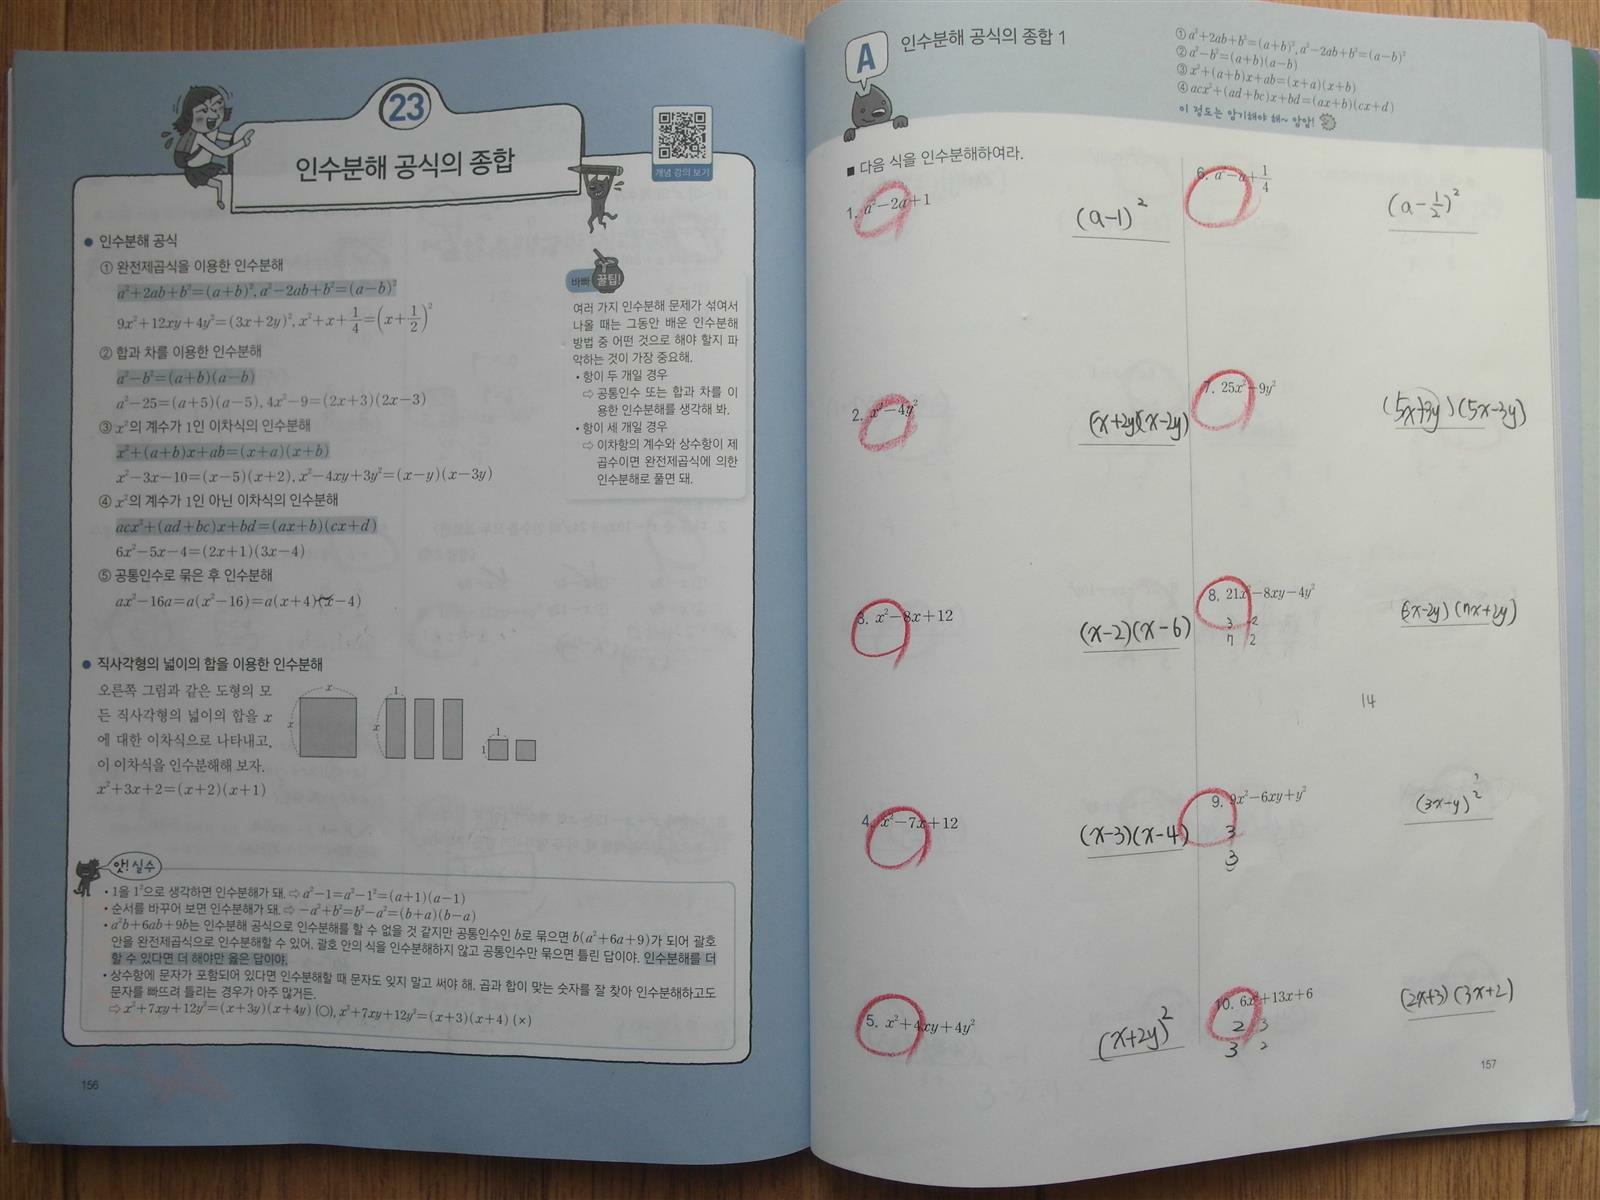 23
인수분해 공식의 종합
개념 강의 보기
● 인수분해 공식
① 완전제곱식을 이용한 인수분해
a²+2ab+b²=(a+b)², a²-2ab+b²=(a-b)²
9x²+12xy+4y²=(3x+2y)², x²+x+1/4=(x+1/2)²
② 합과 차를 이용한 인수분해
a²-b²=(a+b)(a-b)
a²-25=(a+5)(a-5), 4x²-9=(2x+3)(2x-3)
③ x²의 계수가 1인 이차식의 인수분해
x²+(a+b)x+ab=(x+a)(x+b)
x²-3x-10=(x-5)(x+2), x²-4xy+3y²=(x-y)(x-3y)
④ x²의 계수가 1인 아닌 이차식의 인수분해
acx²+(ad+bc)x+bd=(ax+b)(cx+d)
6x²-5x-4=(2x+1)(3x-4)
⑤ 공통인수로 묶은 후 인수분해
ax²-16a=a(x²-16)=a(x+4)(x-4)
바빠 꿀팁!
여러 가지 인수분해 문제가 섞여서
나올 때는 그동안 배운 인수분해
방법 중 어떤 것으로 해야 할지 파
악하는 것이 가장 중요해.
• 항이 두 개일 경우
⇨ 공통인수 또는 합과 차를 이
용한 인수분해를 생각해 봐.
• 항이 세 개일 경우
⇨ 이차항의 계수와 상수항이 제
곱수이면 완전제곱식에 의한
인수분해로 풀면 돼.
● 직사각형의 넓이의 합을 이용한 인수분해
오른쪽 그림과 같은 도형의 모
든 직사각형의 넓이의 합을 x
에 대한 이차식으로 나타내고,
이 이차식을 인수분해해 보자.
x²+3x+2=(x+2)(x+1)
x
x
1
x
1
1
앗! 실수
• 1을 1²으로 생각하면 인수분해가 돼. ⇨ a²-1=a²-1²=(a+1)(a-1)
• 순서를 바꾸어 보면 인수분해가 돼. ⇨ -a²+b²=b²-a²=(b+a)(b-a)
• a²b+6ab+9b는 인수분해 공식으로 인수분해를 할 수 없을 것 같지만 공통인수인 b로 묶으면 b(a²+6a+9)가 되어 괄호
안을 완전제곱식으로 인수분해할 수 있어. 괄호 안의 식을 인수분해하지 않고 공통인수만 묶으면 틀린 답이야. 인수분해를 더
할 수 있다면 더 해야만 옳은 답이야.
• 상수항에 문자가 포함되어 있다면 인수분해할 때 문자도 잊지 말고 써야 해. 곱과 합이 맞는 숫자를 잘 찾아 인수분해하고도
문자를 빠뜨려 틀리는 경우가 아주 많거든.
⇨ x²+7xy+12y²=(x+3y)(x+4y) (○), x²+7xy+12y²=(x+3)(x+4) (×)
156
A
인수분해 공식의 종합 1
① a²+2ab+b²=(a+b)², a²-2ab+b²=(a-b)²
② a²-b²=(a+b)(a-b)
③ x²+(a+b)x+ab=(x+a)(x+b)
④ acx²+(ad+bc)x+bd=(ax+b)(cx+d)
이 정도는 암기해야 해~ 암암!
■ 다음 식을 인수분해하여라.
1. a²-2a+1
(a-1)²
2. x²-4y²
(x+2y)(x-2y)
3. x²-8x+12
(x-2)(x-6)
4. x²-7x+12
(x-3)(x-4)
5. x²+4xy+4y²
(x+2y)²
6. a²-a+1/4
(a-1/2)²
7. 25x²-9y²
(5x+3y)(5x-3y)
8. 21x²-8xy-4y²
3 -2
7 2
(3x-2y)(7x+2y)
14
9. 9x²-6xy+y²
3
3
(3x-y)²
10. 6x²+13x+6
2 3
3 2
(2x+3)(3x+2)
157